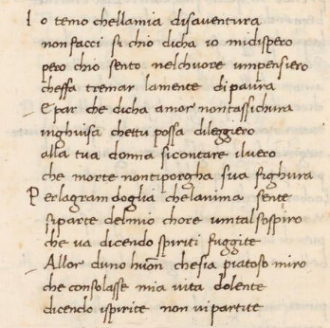 I o temo chellamia disaventura
non facci si chio dicha io midispero
pero chio sento nelchuore umpensiero
cheffa tremar lamente dipaura
E par che dicha amor nontassichura
inghuisa chettu possa dileggiero
alla tua donna sicontare iluero
che morte nontiporgha sua fughura
P erlagram doglia chelanima sente
siparte delmio chore umtal sospiro
che va dicendo spiriti fuggite
Allor duno huom chesia piatoso miro
che consolasse mia vita dolente
dicendo ispirite non vipartite